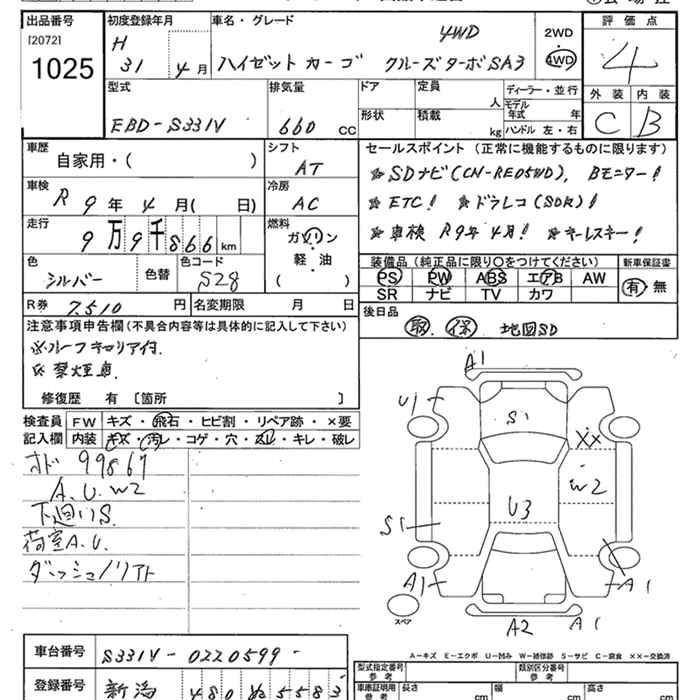 出品番号 初度登録年月 車名・グレード 2WD 評価点
[2072] H 4WD 4WD 4
1025 31 4月 ハイゼットカーゴ クルーズターボSA3
外装 内装
C B
型式 排気量 ドア 定員 人 ディーラー・並行
EBD-S331V 660 cc 形状 積載 kg モデル年式 年
ハンドル 左・右
車歴 シフト セールスポイント (正常に機能するものに限ります)
自家用・( ) AT ☆SDナビ(CN-RE05WD), Bモニター!
車検 冷房 ☆ETC! ☆ドラレコ(SDR)!
R9年4月( 日) AC ☆車検 R9年4月! ☆キーレスキー!
走行 燃料
9万9千866km ガソリン
軽・油
( ・ )
装備品 (純正品に限り○をつけてください) 新車保証書
PS PW ABS エアB AW 有・無
SR ナビ TV カワ
色 色替 色コード
シルバー S28
後日品
R券 7,510円 名変期限 月 日 取.保. 地図SD
注意事項申告欄(不具合内容等は具体的に記入して下さい)
※ルーフキャリア付.
※禁煙車
修復歴 有〔箇所 〕
検査員 FW キズ・飛石・ヒビ割・リペア跡・×要
記入欄 内装 キズ・汚レ・コゲ・穴・スレ・キレ・破レ
オド 99867
A.U.W2
下廻りS.
荷室A.U.
ダッシュノリアト
A1
U1
S1
XX
W2
U3
S1
A1
A1
スペア
A2 A1
A-キズ E-エクボ U-凹み W-補修跡 S-サビ C-腐食 XX-交換済
車台番号 S331V-0220599-
型式指定番号 参考 類別区分番号 参考
登録番号 新潟 480 ぬ 5583
車庫証明用 参考 長さ cm 幅 cm 高さ cm